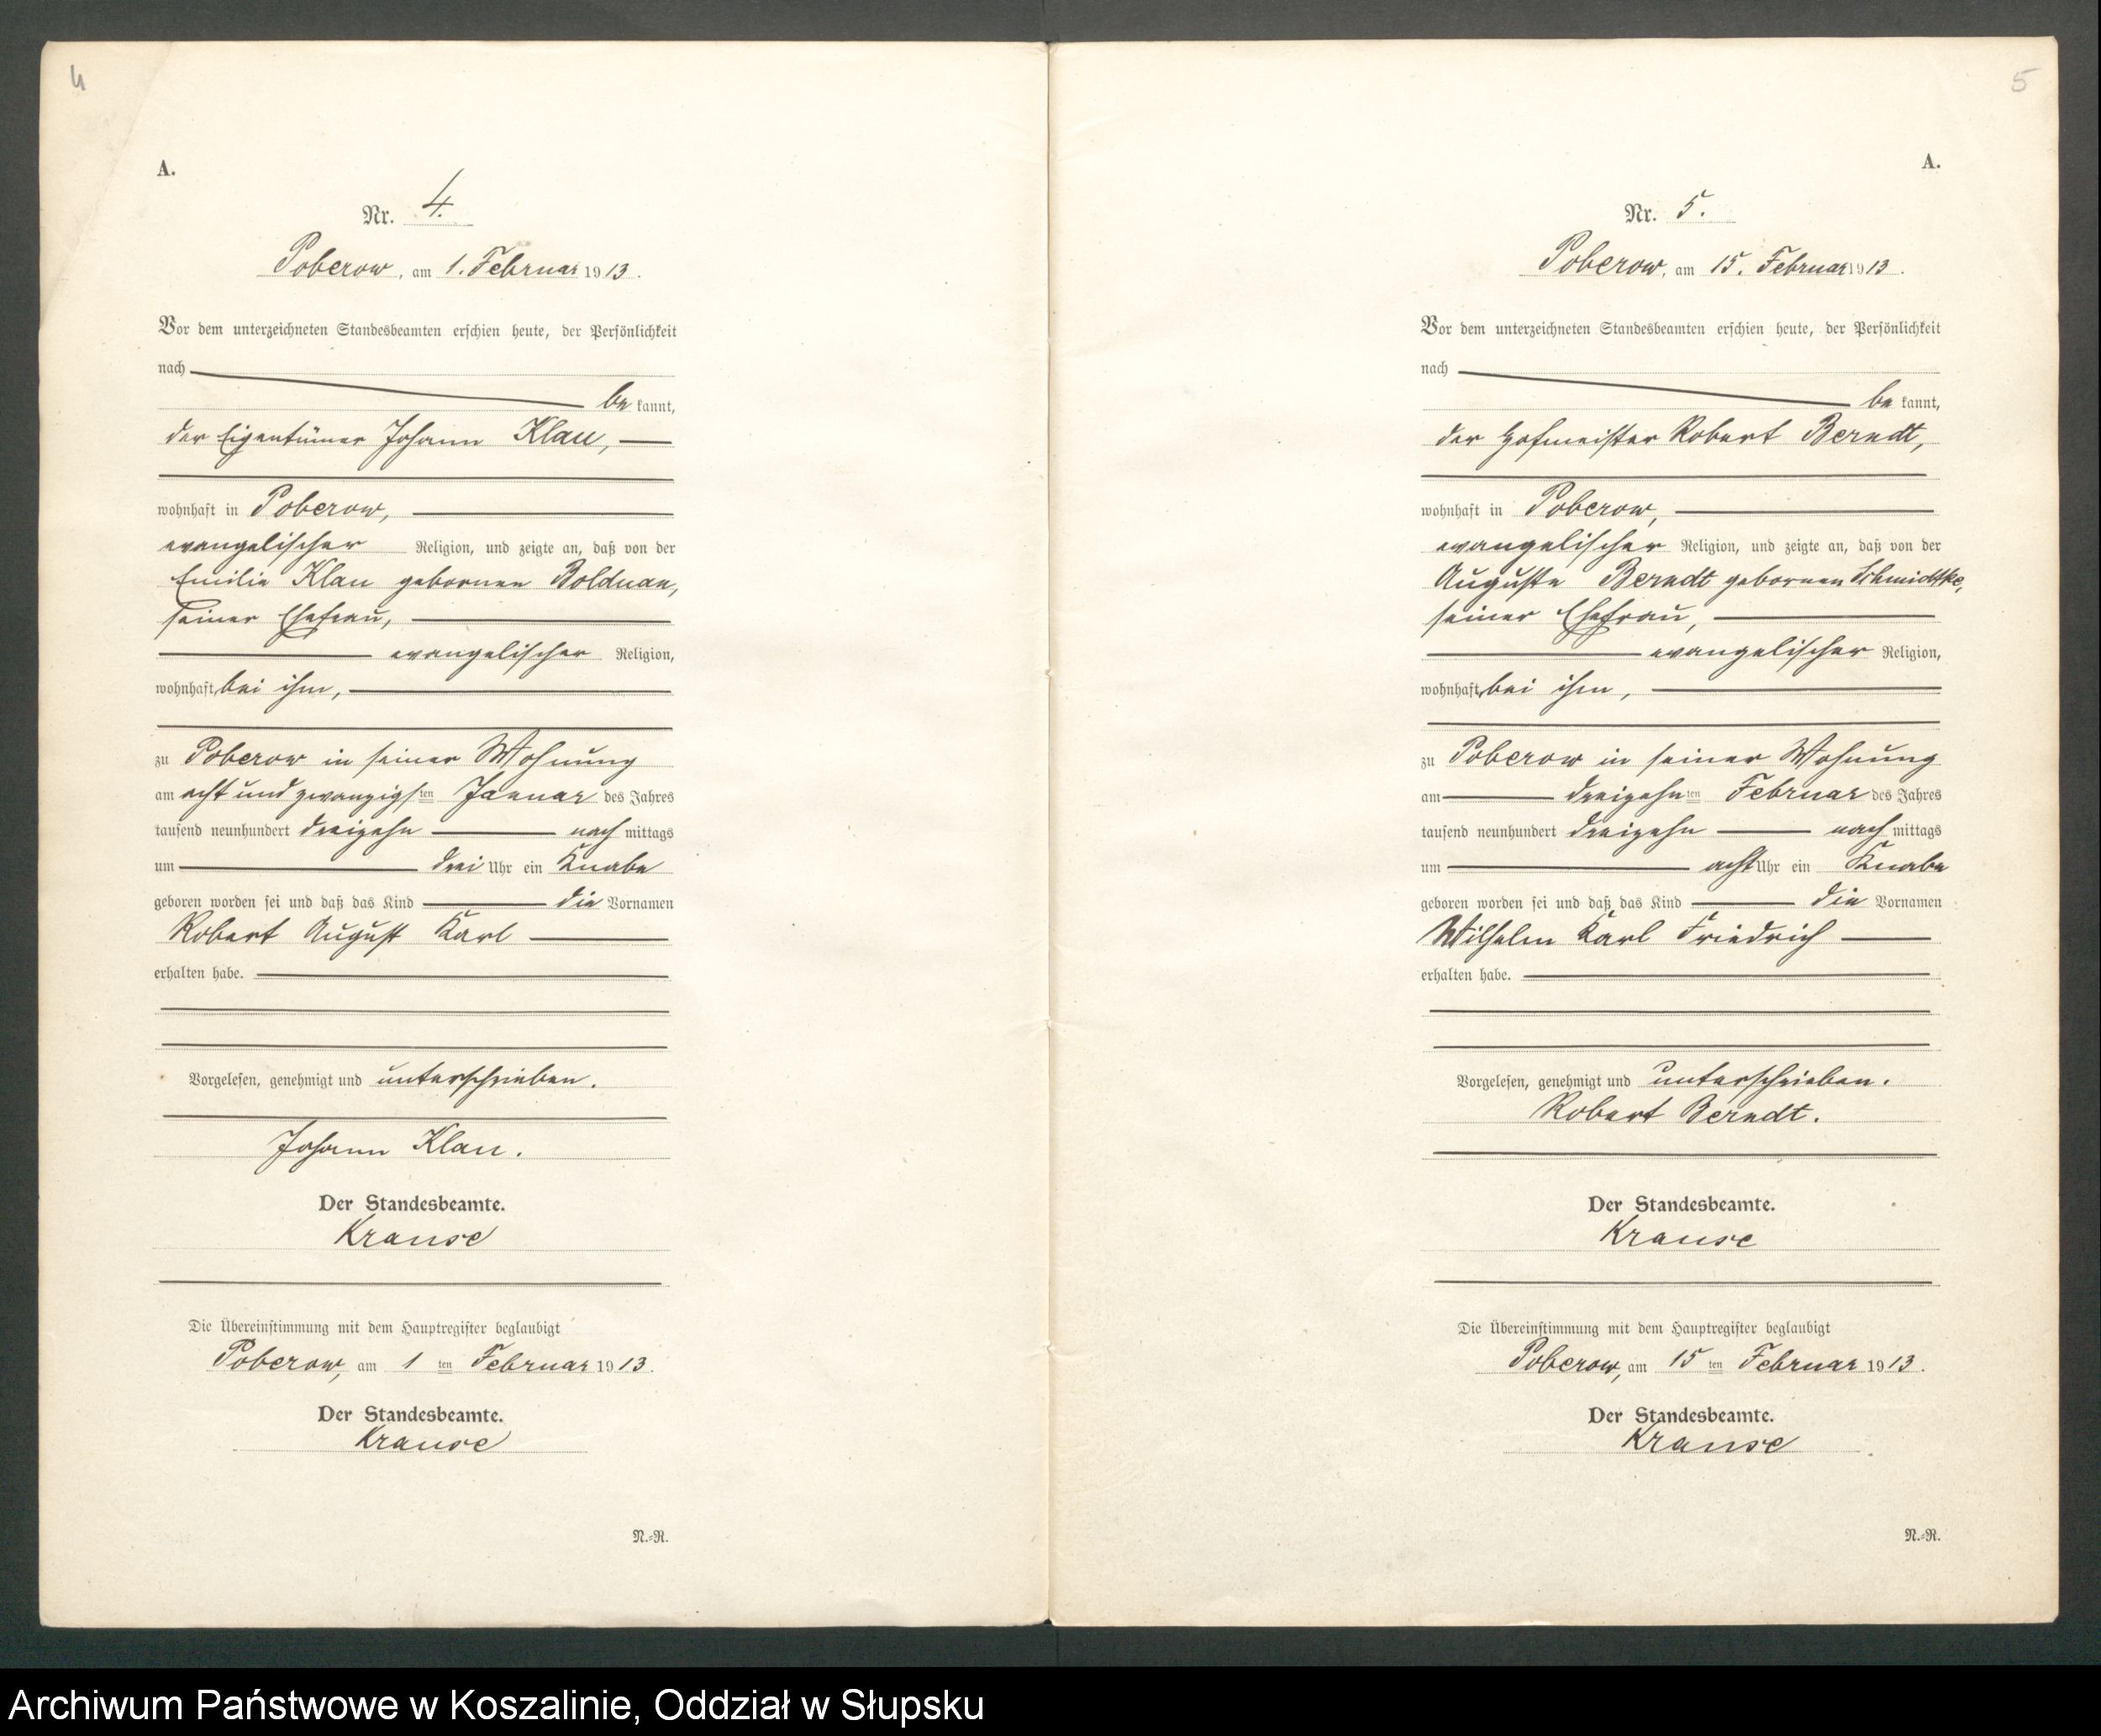 4
A.
Nr. 4.
Poberow, am 1. Februar 1913.
Vor dem unterzeichneten Standesbeamten erschien heute, der Persönlichkeit
nach
be kannt,
der Eigentümer Johann Klau,
wohnhaft in Poberow,
evangelischer Religion, und zeigte an, daß von der
Emilie Klau geborenen Bolduan,
seiner Ehefrau,
evangelischer Religion,
wohnhaft bei ihm,
zu Poberow in seiner Wohnung
am acht und zwanzigsten Januar des Jahres
tausend neunhundert dreizehn nach mittags
um drei Uhr ein Knabe
geboren worden sei und daß das Kind die Vornamen
Robert August Karl
erhalten habe.
Vorgelesen, genehmigt und unterschrieben.
Johann Klau.
Der Standesbeamte.
Krause
Die Übereinstimmung mit dem Hauptregister beglaubigt
Poberow, am 1 ten Februar 1913.
Der Standesbeamte.
Krause
N.-R.
5
A.
Nr. 5.
Poberow, am 15. Februar 1913.
Vor dem unterzeichneten Standesbeamten erschien heute, der Persönlichkeit
nach
be kannt,
der Hofmeister Robert Berndt,
wohnhaft in Poberow,
evangelischer Religion, und zeigte an, daß von der
Auguste Berndt geborenen Schmidtke,
seiner Ehefrau,
evangelischer Religion,
wohnhaft bei ihm,
zu Poberow in seiner Wohnung
am dreizehnten Februar des Jahres
tausend neunhundert dreizehn nach mittags
um acht Uhr ein Knabe
geboren worden sei und daß das Kind die Vornamen
Wilhelm Karl Friedrich
erhalten habe.
Vorgelesen, genehmigt und unterschrieben.
Robert Berndt.
Der Standesbeamte.
Krause
Die Übereinstimmung mit dem Hauptregister beglaubigt
Poberow, am 15 ten Februar 1913.
Der Standesbeamte.
Krause
N.-R.
Archiwum Państwowe w Koszalinie, Oddział w Słupsku